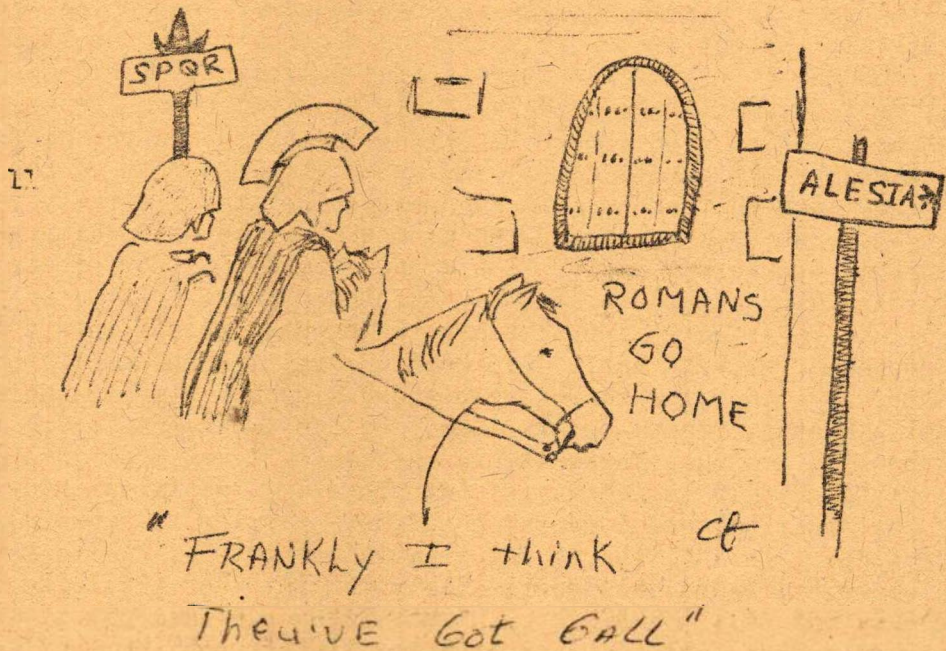 SPQR
11
ALESIA*
ROMANS
GO
HOME
"FRANKLY I think
They'VE Got GALL"